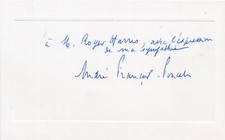 à M. Roger Harris, avec l'expression
de ma sympathie
André François-Poncet